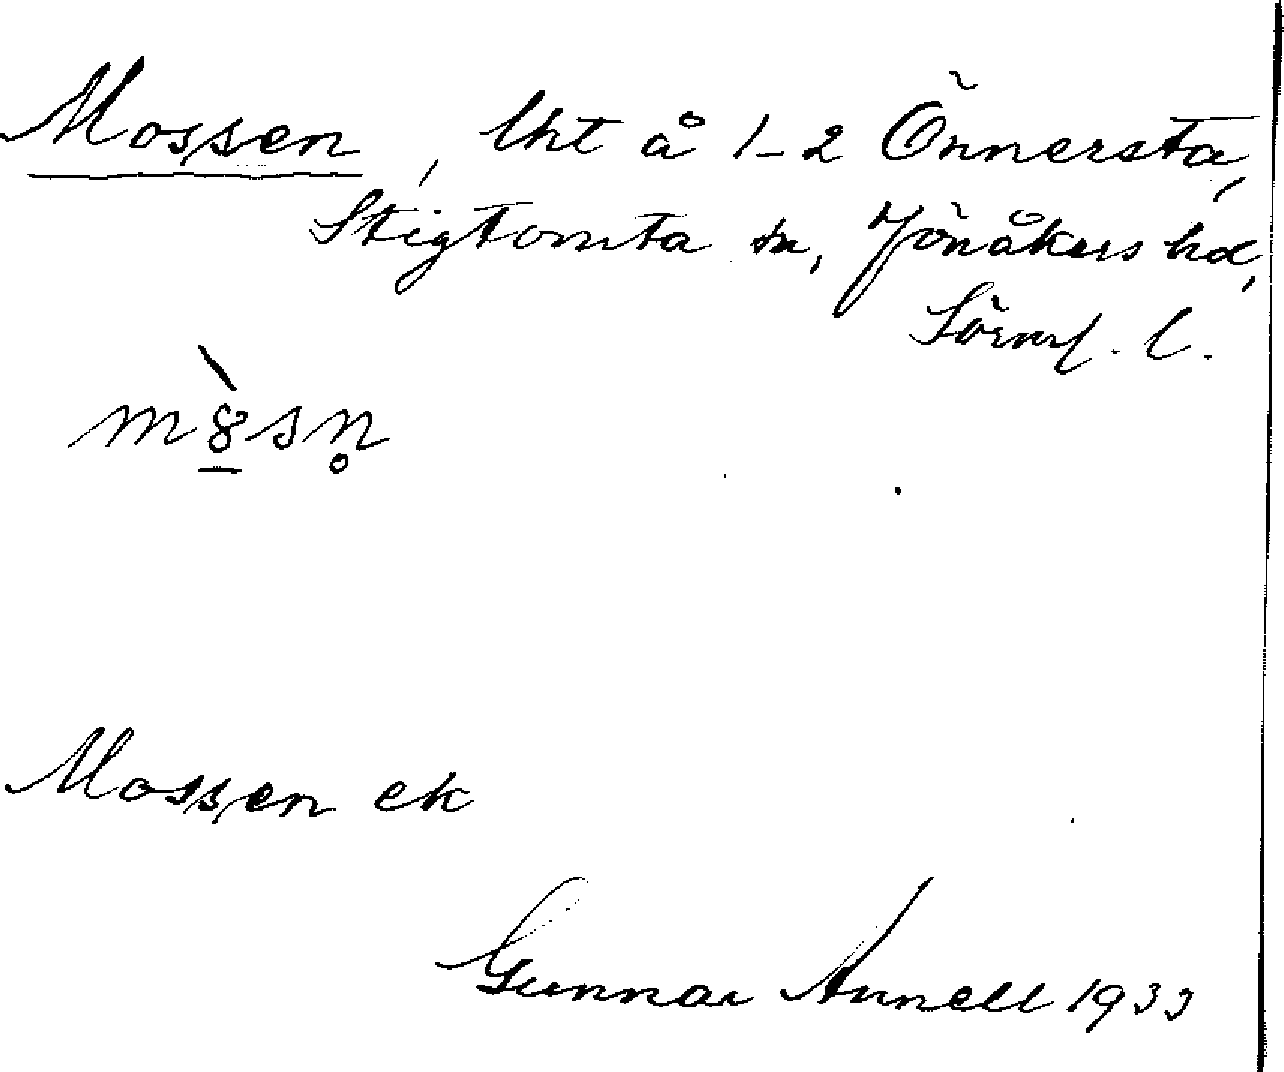 Mossen, lht å 1-2 Önnersta,
Stigtomta sn, Jönåkers hd,
Sörml. l.
m8̱̀sn̥
Mossen ek
Gunnar Annell 1933